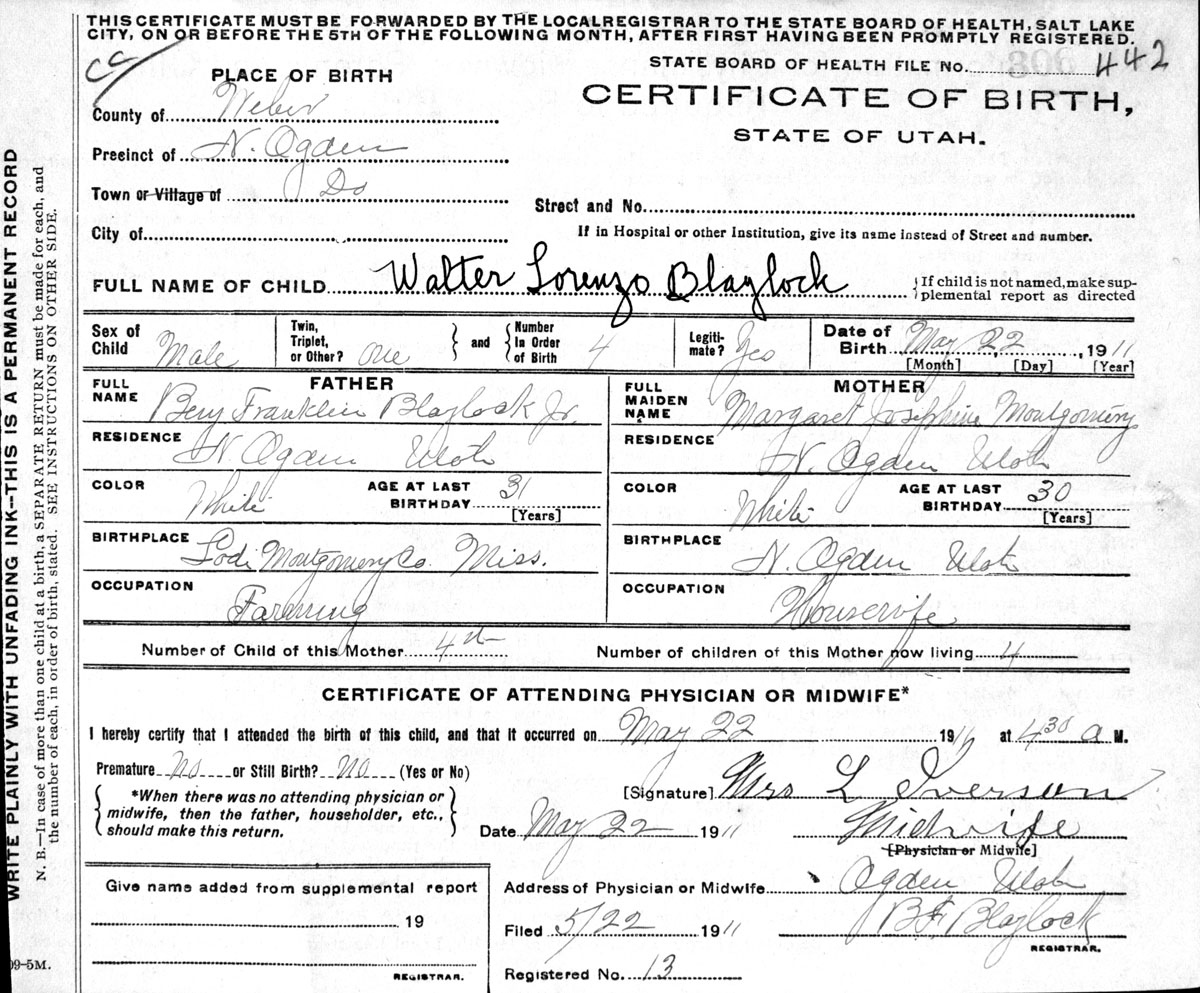 THIS CERTIFICATE MUST BE FORWARDED BY THE LOCAL REGISTRAR TO THE STATE BOARD OF HEALTH, SALT LAKE
CITY, ON OR BEFORE THE 5TH OF THE FOLLOWING MONTH, AFTER FIRST HAVING BEEN PROMPTLY REGISTERED.
STATE BOARD OF HEALTH FILE NO. 442
PLACE OF BIRTH
CERTIFICATE OF BIRTH,
STATE OF UTAH.
County of Weber
Precinct of N. Ogden
Town or Village of Do
Street and No.
City of
If in Hospital or other Institution, give its name instead of Street and number.
FULL NAME OF CHILD Walter Lorenzo Blaylock
{If child is not named, make sup-
plemental report as directed
Sex of Child Male
Twin, Triplet, or Other? One } and { Number In Order of Birth 4
Legiti-mate? Yes
Date of Birth May 22, 1911
[Month] [Day] [Year]
FATHER
FULL NAME Benj Franklin Blaylock Jr.
RESIDENCE N. Ogden Utah
COLOR White AGE AT LAST BIRTHDAY 31 [Years]
BIRTHPLACE Lodi Montgomery Co. Miss.
OCCUPATION Farming
MOTHER
FULL MAIDEN NAME Margaret Josephine Montgomery
RESIDENCE N. Ogden Utah
COLOR White AGE AT LAST BIRTHDAY 30 [Years]
BIRTHPLACE N. Ogden Utah
OCCUPATION Housewife
Number of Child of this Mother 4th Number of children of this Mother now living 4
CERTIFICATE OF ATTENDING PHYSICIAN OR MIDWIFE*
I hereby certify that I attended the birth of this child, and that it occurred on May 22 1911, at 4 30 a M.
Premature No or Still Birth? No (Yes or No)
{*When there was no attending physician or
midwife, then the father, householder, etc.,
should make this return.}
[Signature] Mrs L Iverson
Date May 22 1911 Midwife
[Physician or Midwife]
Give name added from supplemental report
19
REGISTRAR.
Address of Physician or Midwife Ogden Utah
Filed 5/22 1911 B F Blaylock
REGISTRAR.
Registered No. 13
WRITE PLAINLY WITH UNFADING INK--THIS IS A PERMANENT RECORD
N. B.—In case of more than one child at a birth, a SEPARATE RETURN must be made for each, and
the number of each, in order of birth, stated. SEE INSTRUCTIONS ON OTHER SIDE.
09-5M.